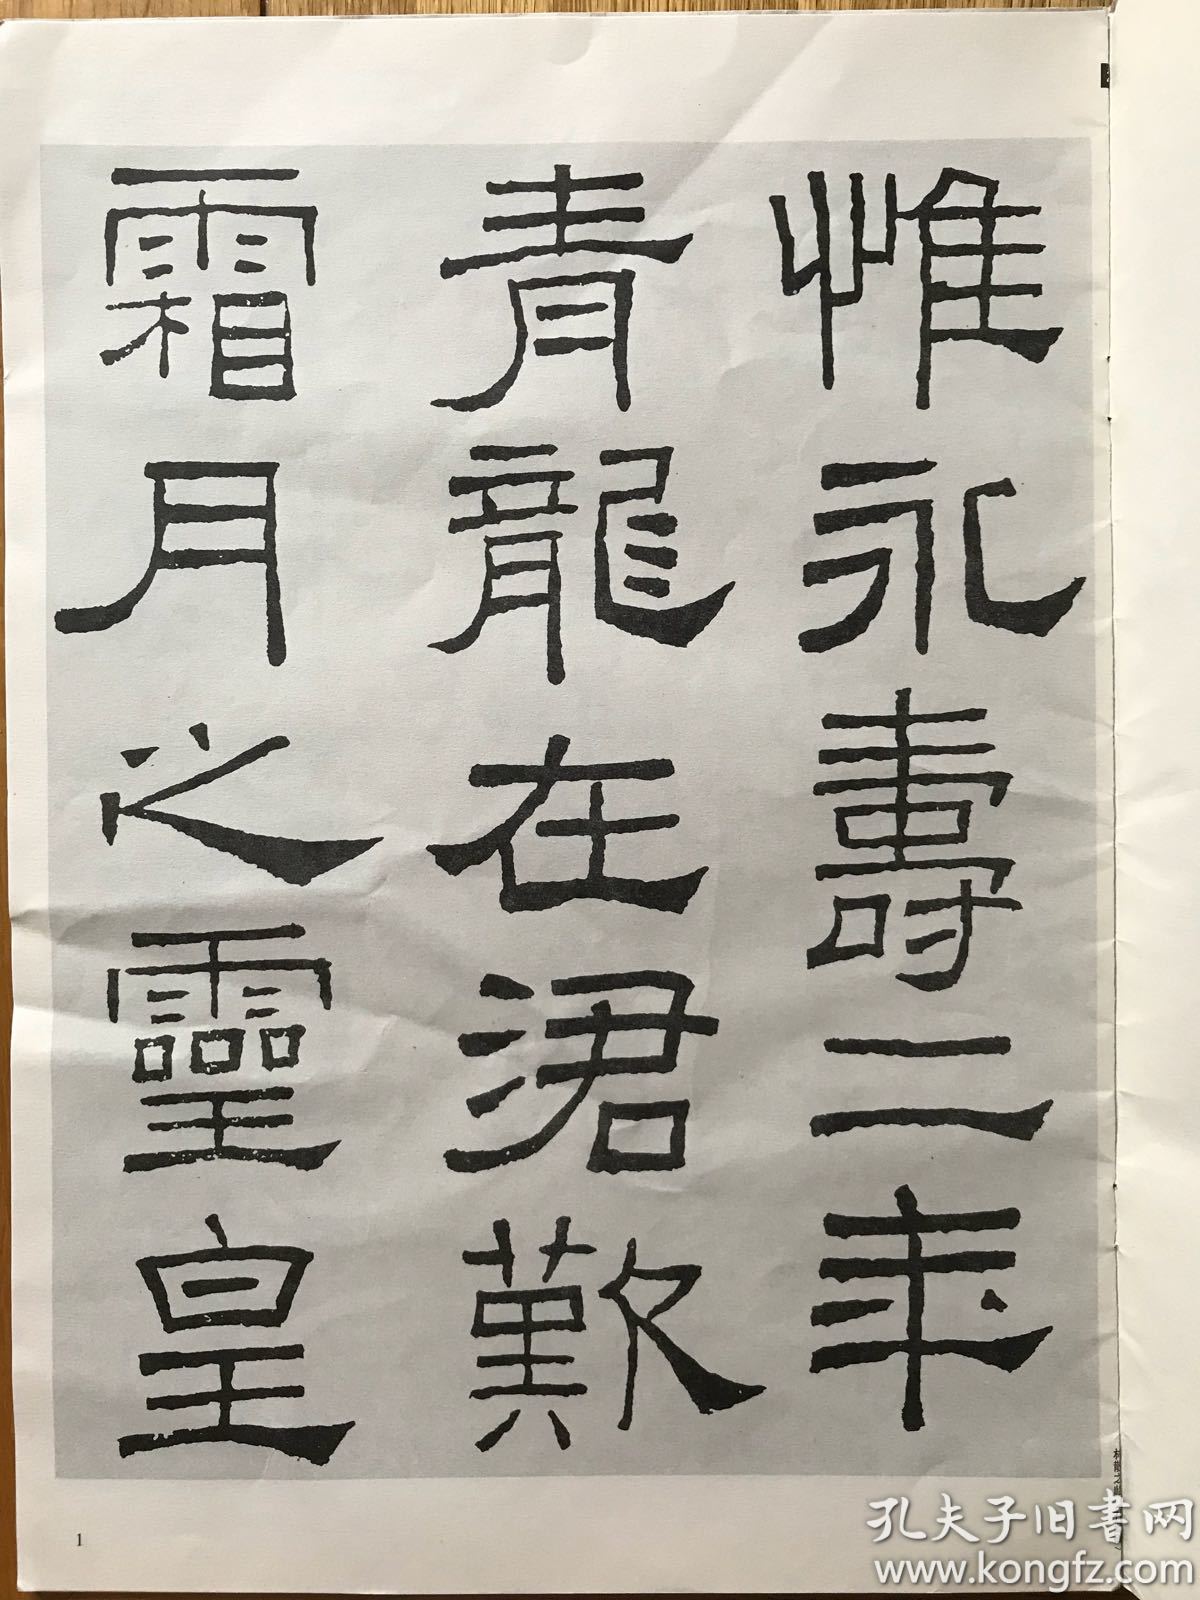 惟永壽二年
青龍在涒歎
霜月之靈皇
1
孔夫子旧書网
www.kongfz.com